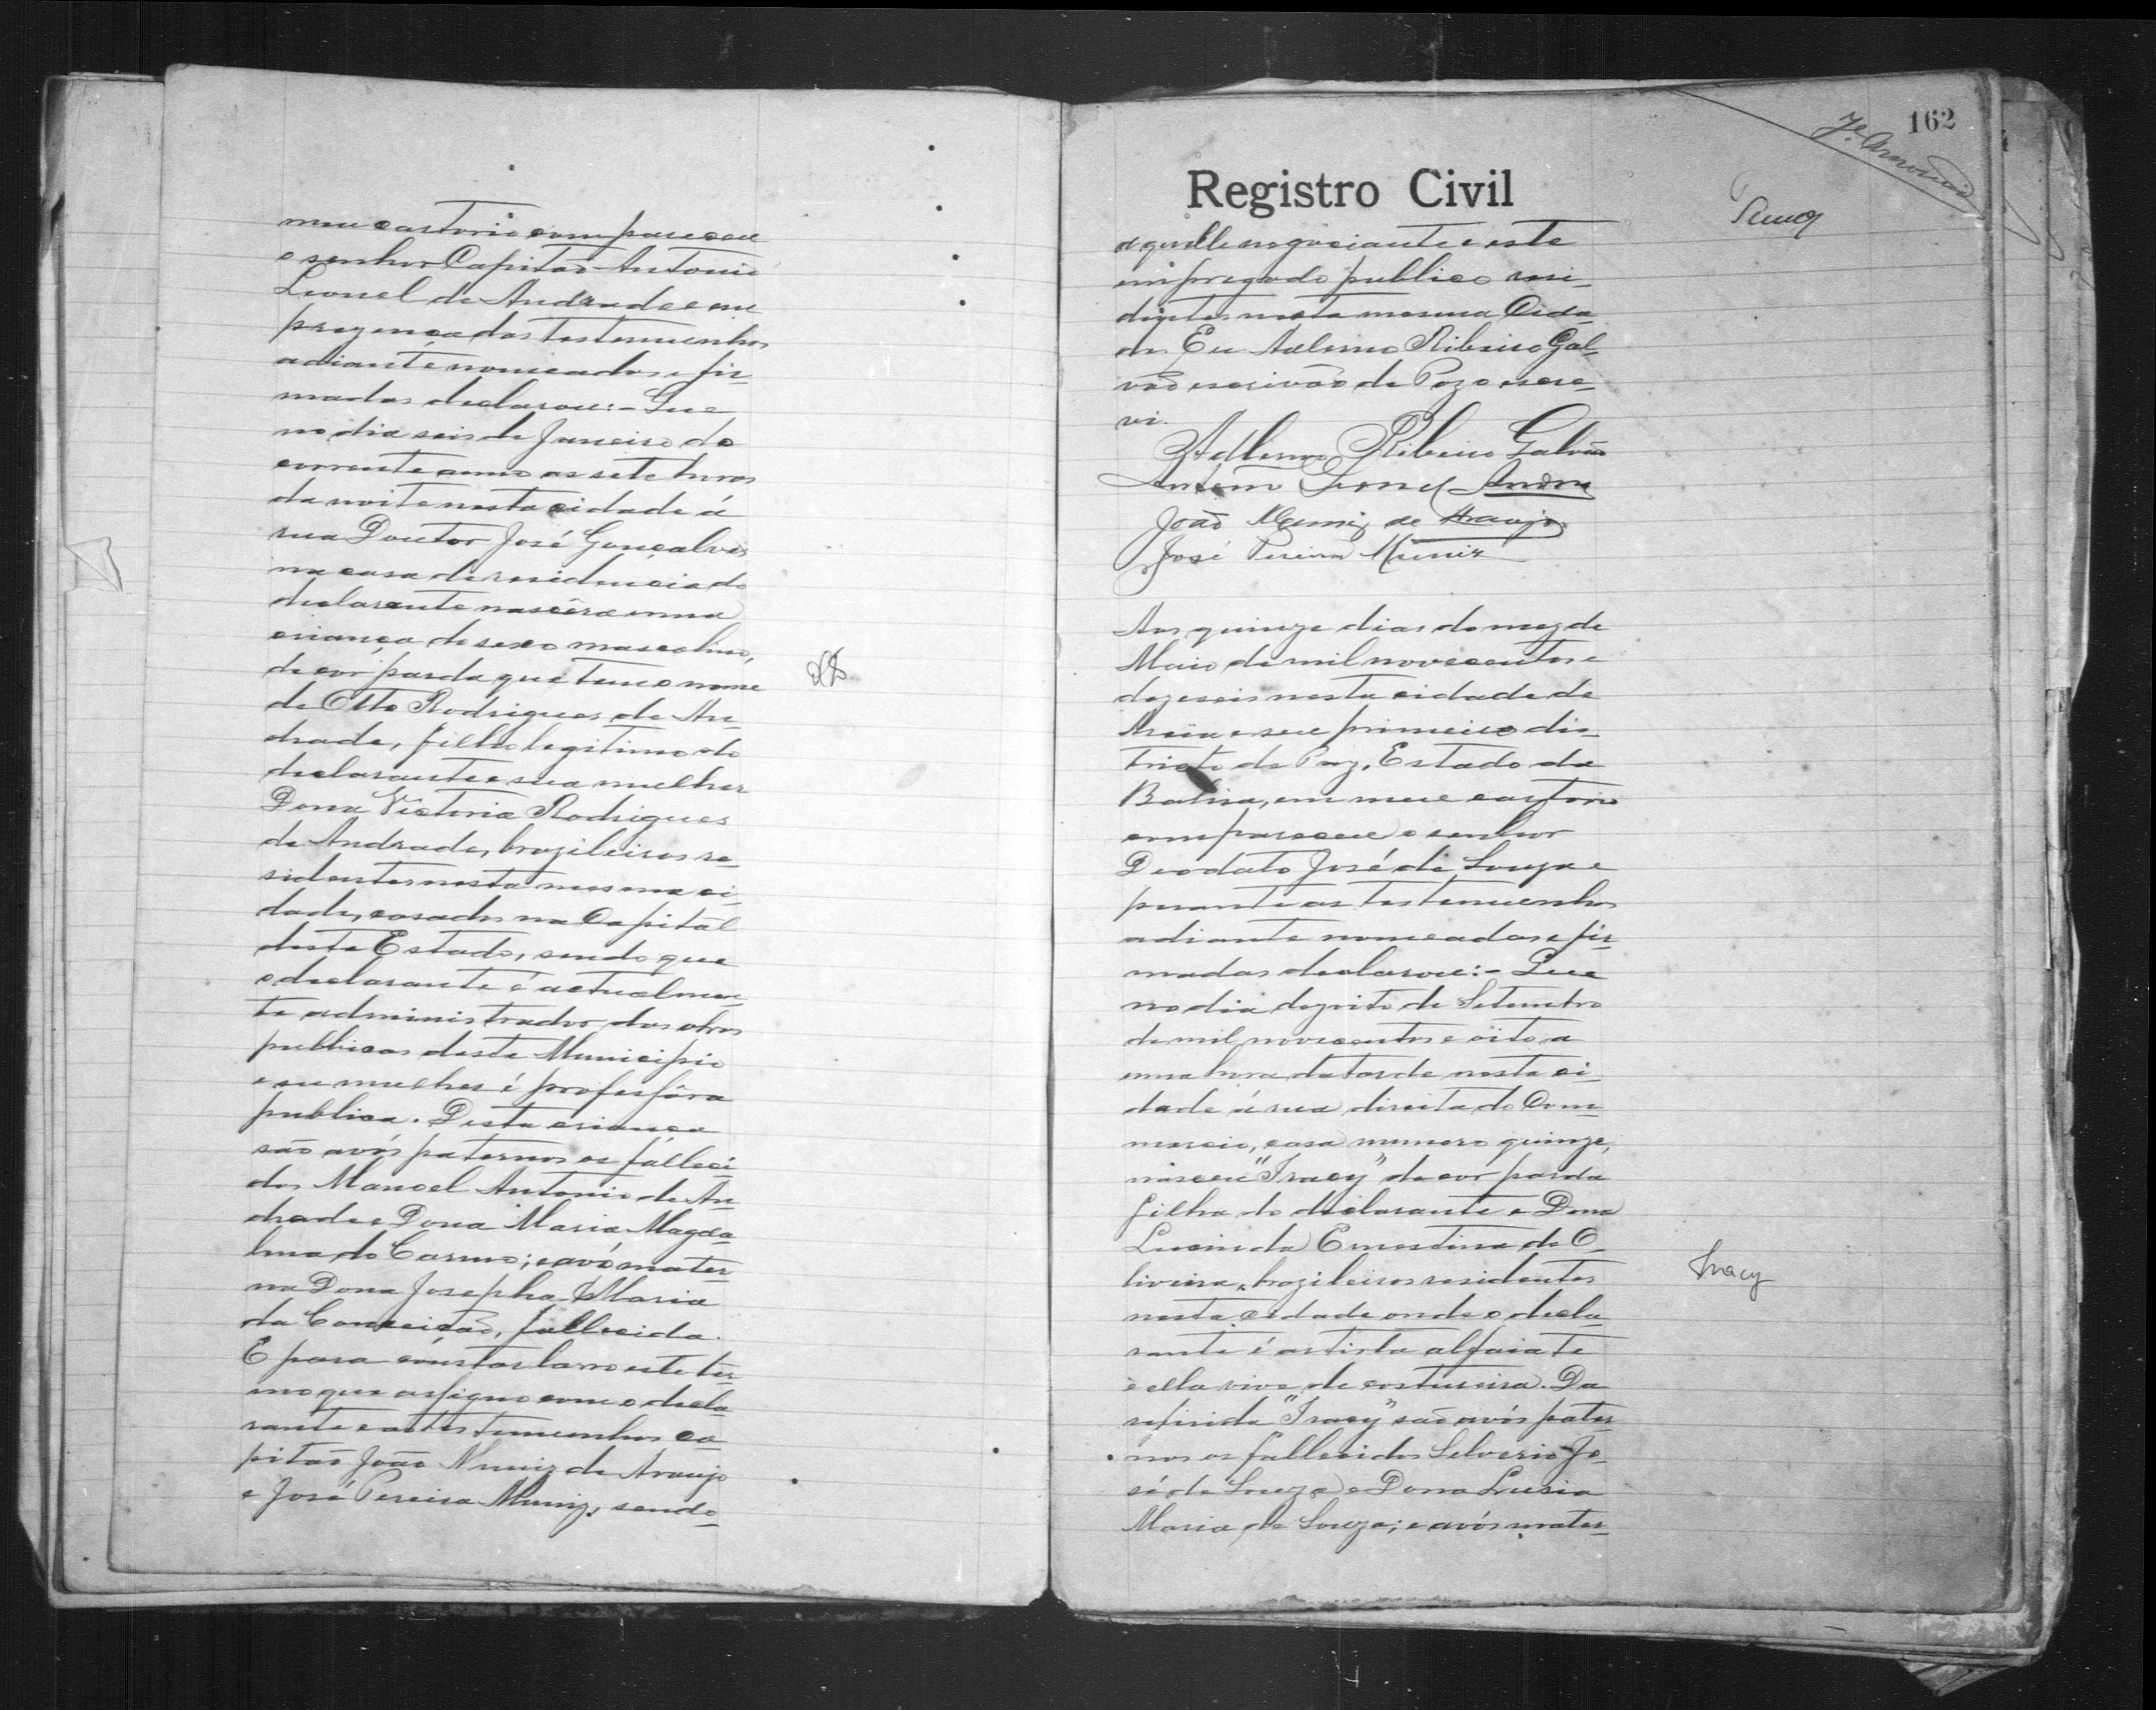 meu cartorio compareceu
o senhor Capitão Antonio
Leonel de Andrade e em
prezença das testemunhas
adiante nomeadas e fir-
madas declarou:- Que
no dia seis de Janeiro do
corrente anno as sete horas
da noite nesta cidade á
rua Doutor José Gonçalves
na casa de residencia do
declarante nascêra uma
criança do sexo masculino,
de cor parda que tem o nome
de Otto Rodrigues de An-
drade, filho legitimo do
declarante e sua mulher
Dona Victoria Rodrigues
de Andrade, brazileiros re-
sidentes nesta mesma ci-
dade, casados na Capital
deste Estado, sendo que
o declarante é actualmen-
te administrador das obras
publicas deste Municipio
e su mulher é professôra
publica. Desta criança
são avós paternos os falleci
dos Manoel Antonio de An-
drade e Dona Maria Magda-
lena do Carmo; e avó mater-
na Dona Josepha Maria
da Conceição, fallecida.
E para constar lavro este ter-
mo que assigno com o decla-
rante e as testemunhas ca-
pitão João Muniz de Araujo
e José Pereira Muniz, sendo
162
Registro Civil
aquelle negociante e este
empregado publico resi-
digtes nesta mesma Cida-
de. Eu Adlerno Ribeiro Gal-
vão escrivão de Paz o escre-
vi.
Adlerno Ribeiro Galvão
Antonio Leonel Andra
João Muniz de Araujo
José Pereira Muniz
Aos quinze dias do mez de
Maio de mil novecentos e
dezeseis nesta cidade de
Areia e seu primeiro dis-
tricto de Paz, Estado da
Bahia, em meu cartorio
compareceu o senhor
Deodato José de Souza e
perante as testemunhas
adiante nomeadas e fir-
madas declarou:- Que
no dia dezoito de Setembro
de mil novecentos e oito a
uma hora da tarde nesta ci-
dade á rua direita do Com-
mercio, casa numero quinze,
nasceu "Iracy" de cor parda
filha do declarante e Dona
Lucinda Ernestina de O-
liveira, brazileiros residentes
nesta cidade onde o decla-
rante é artista alfaiate
e ella vive de costureira. Da
referida "Iracy" são avós pater-
nos os fallecidos Silverio Jo-
sé de Souza e Dona Lucia
Maria de Souza; e avós mater-
Iracy